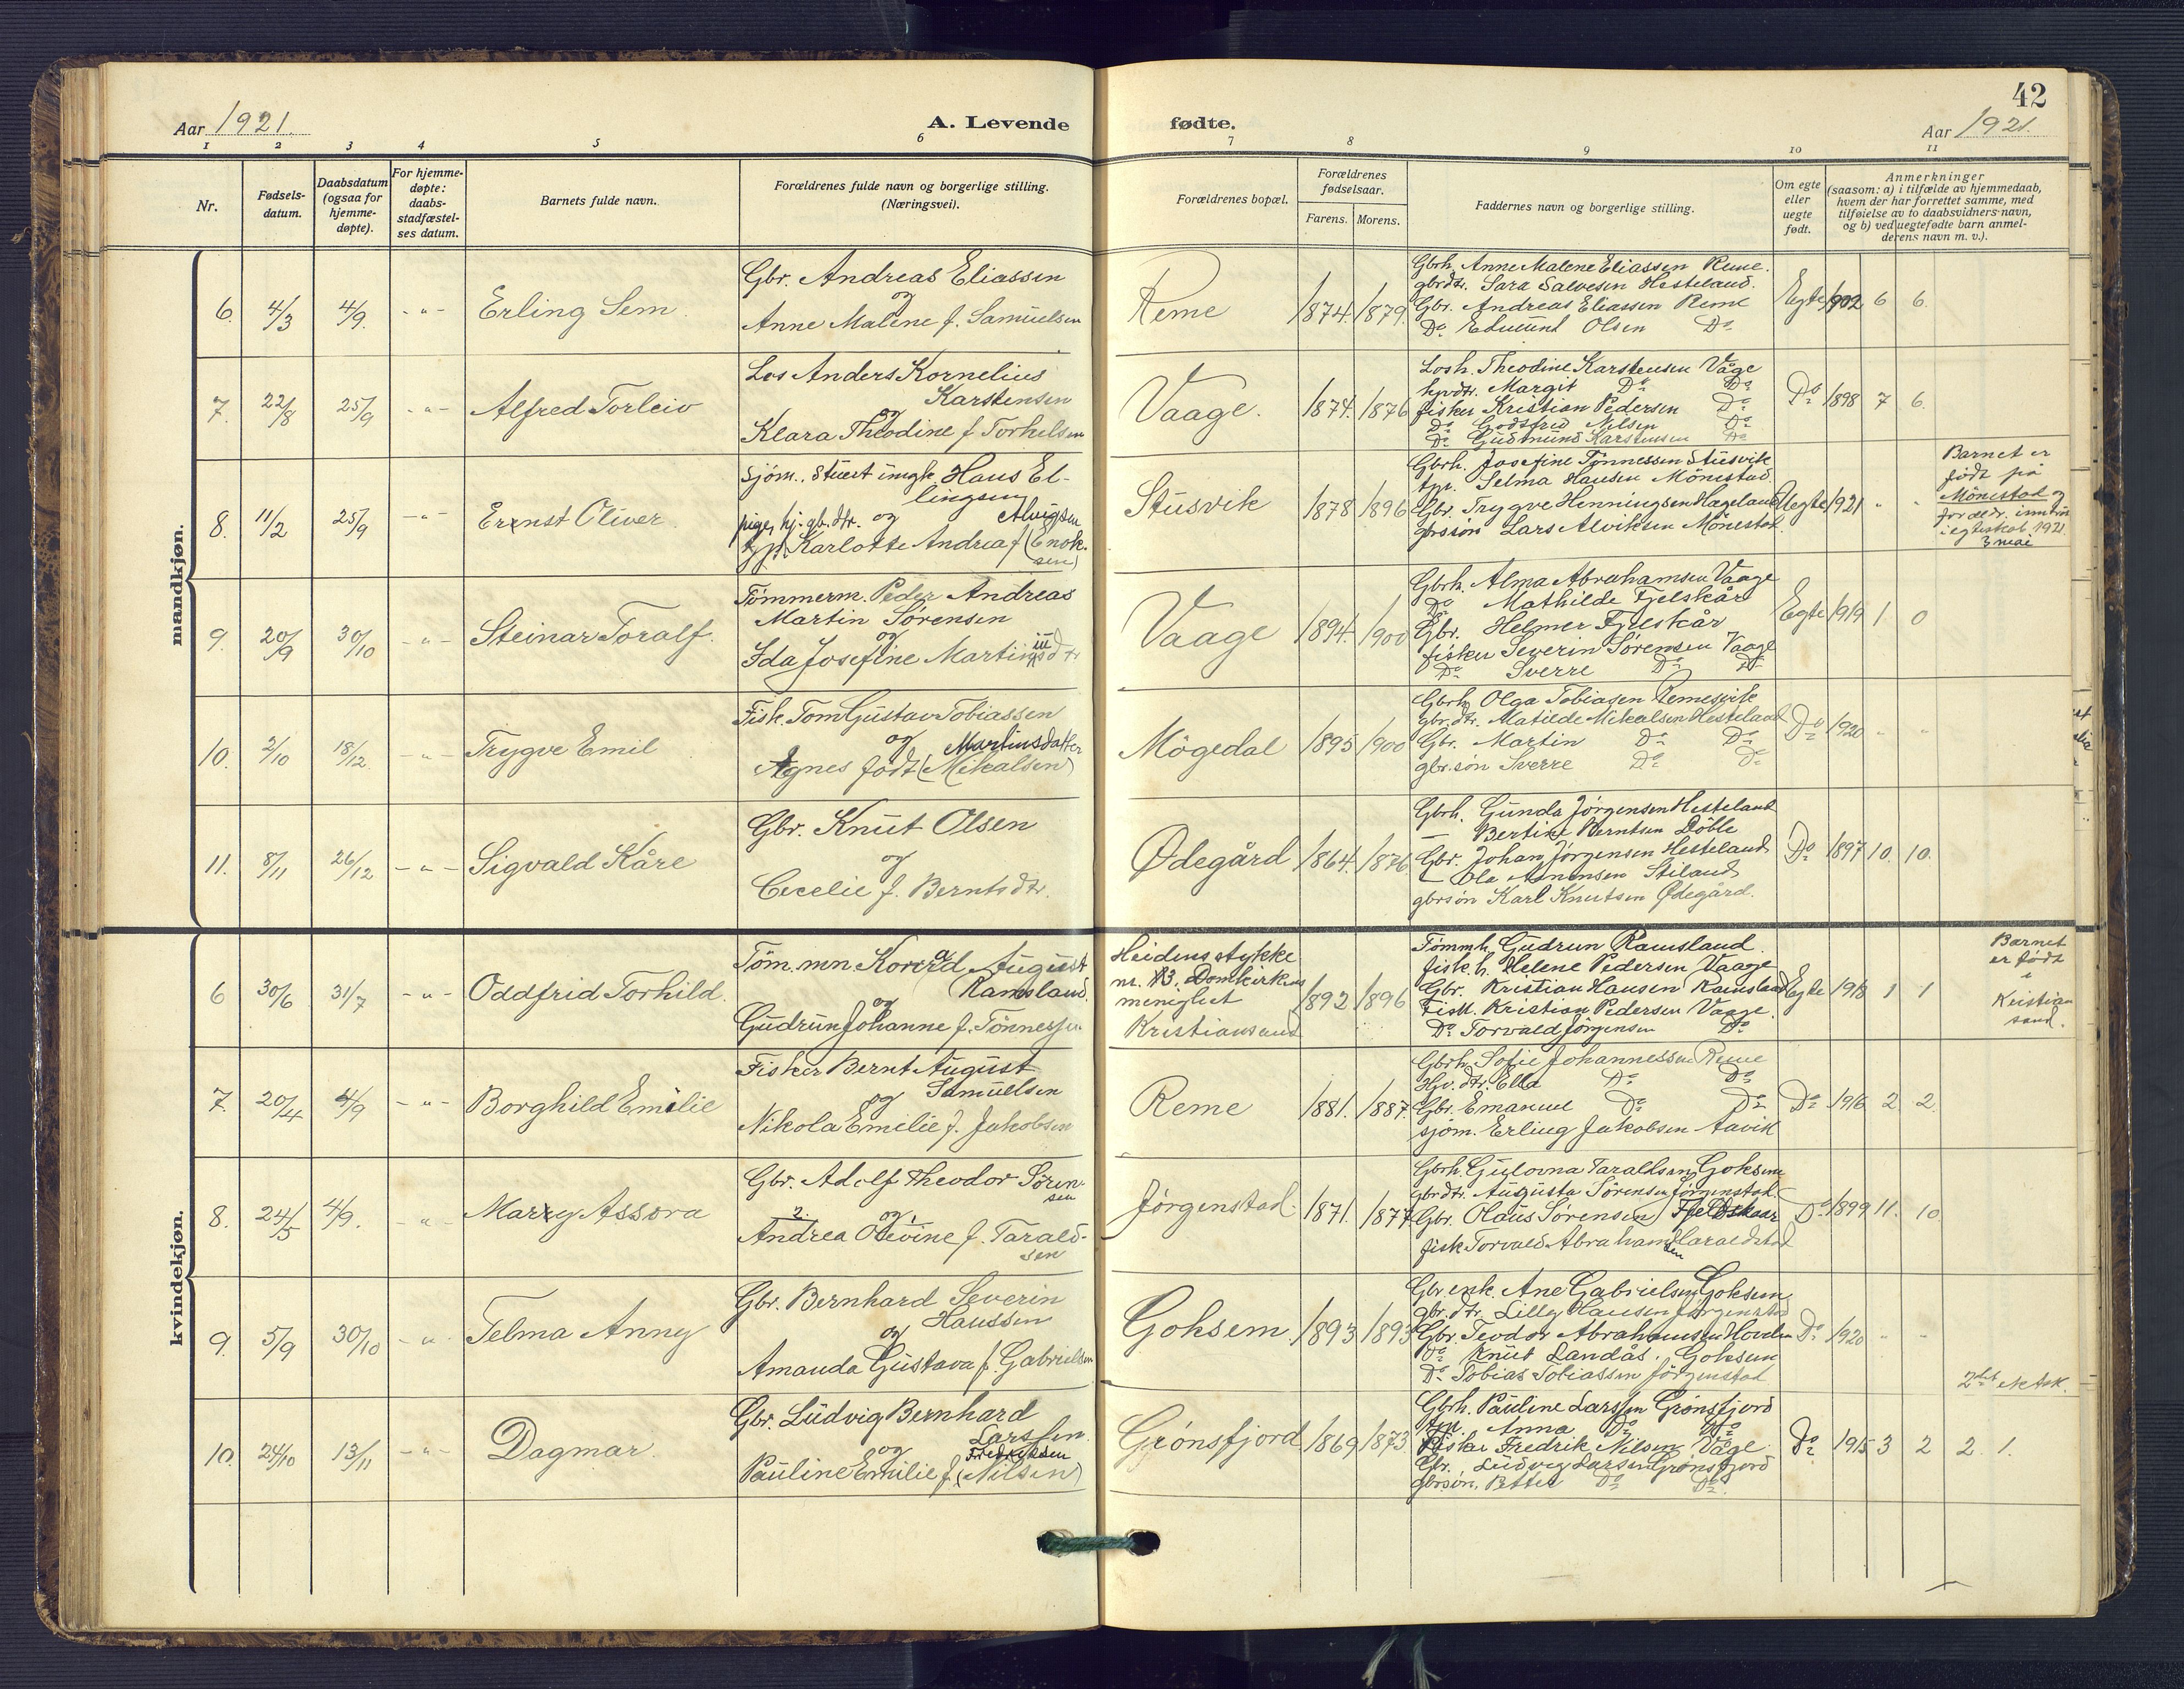 42
Aar 1921.
A. Levende fødte.
Aar 1921.
1 2 3 4 5 6 7 8 9 10 11
Nr.
Fødsels-
datum.
Daabsdatum
(ogsaa for
hjemme-
døpte).
For hjemme-
døpte:
daabs-
stadfæstel-
ses datum.
Barnets fulde navn.
Forældrenes fulde navn og borgerlige stilling.
(Næringsvei).
Forældrenes bopæl.
Forældrenes
fødselsaar.
Farens. Morens.
Faddernes navn og borgerlige stilling.
Om egte
eller
uegte
født.
Anmerkninger
(saasom: a) i tilfælde av hjemmedaab,
hvem der har forrettet samme, med
tilføielse av to daabsvidners navn,
og b) ved uegtefødte barn anmel-
derens navn m. v.).
mandkjøn.
6. 4/3 4/9. -"- Erling Sem.
Gbr. Andreas Eliassen
og
Anne Malene f. Samuelsen
Reme 1874. 1879.
Gbrh. Anne Malene Eliassen Reme.
gbrdtr. Sara Salvesen Hesteland.
Gbr. Andreas Eliassen Reme
Do Edmund Olsen Do
Egte 1902 6 6.
7. 22/8 25/9 -"- Alfred Torleiv
Los Anders Kornelius
Karstensen
og
Klara Theodine f. Torkelsen
Vaage. 1874. 1876
Losh. Theodine Karstensen Våge
hjvdtr. Margit Do Do
fisker Kristian Pedersen Do
Do Godtfred Nilsen Do
Do Gudmund Karstensen Do
Do 1898 7 6.
8. 11/2 25/9 -"- Ernst Oliver.
Sjøm., Stuert ungk. Hans El-
lingsen
pige, hj. gbr.dtr. og Alvigsen
tjp. Karlotte Andrea f. (Enok-
sen)
Stusvik 1878 1896
Gbrh. Josefine Tønnessen Stusvik
tjp. Selma Hansen Mönestad.
Gbr. Trygve Henningsen Hageland
gbrsøn Lars Alviksen Mönestad.
Uegte 1921 " "
Barnet er
født på
Mönestad og
foræld. inntrm
i egteskab 1921.
3 mai
9. 20/9 30/10 -"- Steinar Toralf.
Tømmerm. Peder Andreas
Martin Sørensen
og
Ida Josefine Martinsdtr
Vaage 1894. 1900
Gbrh. Alma Abrahamsen Vaage
Do Mathilde Fjelskår
Gbr. Helmer Fjelskår
fisker Severin Sørensen Vaage
Do Sverre Do Do
Egte 1919 1 0
10. 2/10 18/12. -"- Trygve Emil
Fisk. Tom Gustav Tobiassen
og Martinsdatter
Agnes født (Mikalsen)
Mögedal 1895 1900
Gbrh. Olga Tobiasen Remesvik
Gbr.dtr. Matilde Mikalsen Hesteland
Gbr. Martin Do Do
gbr.søn Sverre Do Do
Do 1920 " "
11. 8/11 26/12 -"- Sigvald Kåre
Gbr. Knut Olsen
og
Cecelie f. Berntsdtr.
Ødegård 1864. 1876
Gbrh. Gunda Jørgensen Hesteland
— Bertine Berntsen Döble
Gbr. Johan Jørgensen Hesteland
— Ola Anensen Stiland
gbrsøn Karl Knutsen Ødegård.
Do 1897 10. 10.
kvindekjøn.
6 30/6 31/7 -"- Oddfrid Torhild.
Töm.mn Konrad August
Ramsland.
og
Gudrun Johanne f. Tönnessen
Heidens stykke
nr. 13. Domkirkens
menighet
Kristiansand
1892 1896
Tömmh. Gudrun Ramsland.
fisk.h. Helene Pedersen Vaage
Gbr. Kristian Hansen Ramsland
Fisk. Kristian Pedersen Vaage.
Do Torvald Jørgensen Do
Egte 1918 1 1
Barnet
er født
i
Kristian
sand.
7. 20/4 4/9 -"- Borghild Emilie
Fisker Bernt August
Samuelsen
og
Nikola Emilie f. Jakobsen
Reme 1881. 1887.
Gbrh. Sofie Johannessen Reme
Hjv.dtr. Ella Do Do
Gbr. Emanuel Do Do
sjøm. Erling Jakobsen Aavik
Do 1916 2 2.
8. 24/5 4/9. -"- Mary Assora
Gbr. Adolf Theodor Søren-
sen
2. og 1.
Andrea Olevine f. Tarald-
sen
Jørgenstad. 1871. 1877
Gbrh. Gulovna Taraldsen Goksem
gbrdtr. Augusta Sørensen Jørgenstad.
Gbr. Olaus Sørensen Fjeldskaar
fisk. Torvald Abrahamsen Haraldstad
Do 1899 11. 10.
9. 5/9 30/10 -"- Telma Anny
Gbr. Bernhard Severin
Hanssen
og
Amanda Gustava f. Gabrielsen
Goksem. 1893 1893
Gbr.enk. Ane Gabrielsen Goksem
gbr.dtr. Lilly Hansen Jørgenstad
Gbr. Teodor Abrahamsen Hovden
Do Knut Landås. Goksem
Do Tobias Tobiassen Jörgenstad
Do 1920 " "
10. 24/10 13/11 -"- Dagmar.
Gbr. Ludvig Bernhard
Larssen.
og Fredriksen
Pauline Emilie f. (Nilsen)
Grönsfjord 1869 1873
Gbrh. Pauline Larssen Grönsfjord
tjp. Anna Do Do
Fisker Fredrik Nilsen Våge.
Gbr. Ludvig Larsen Grønsfjord
gbrsøn. Petter Do Do
Do 1915 3 2 2. 1.
2det ektsk.